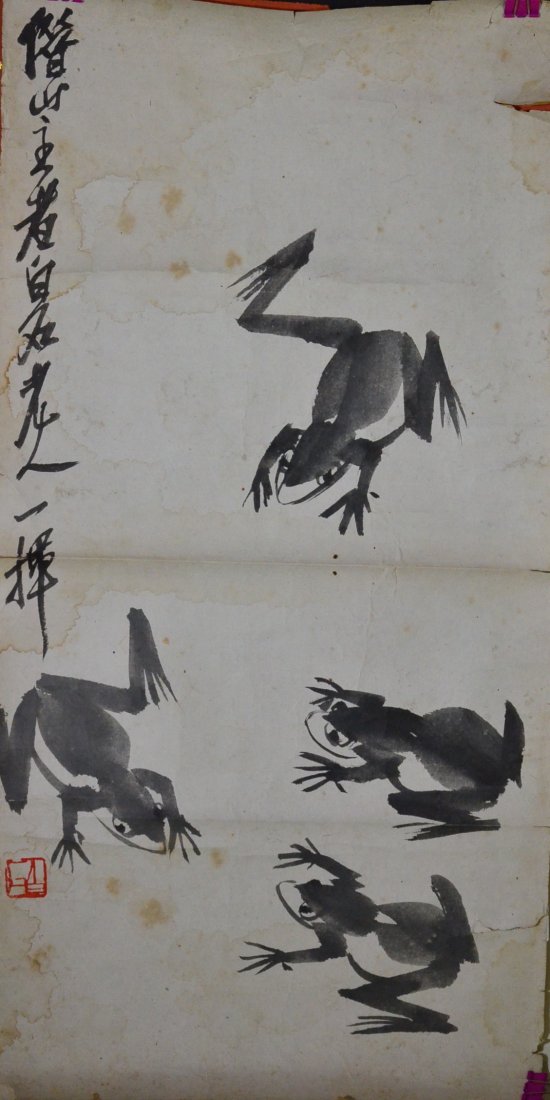 借山主者白石老人一揮